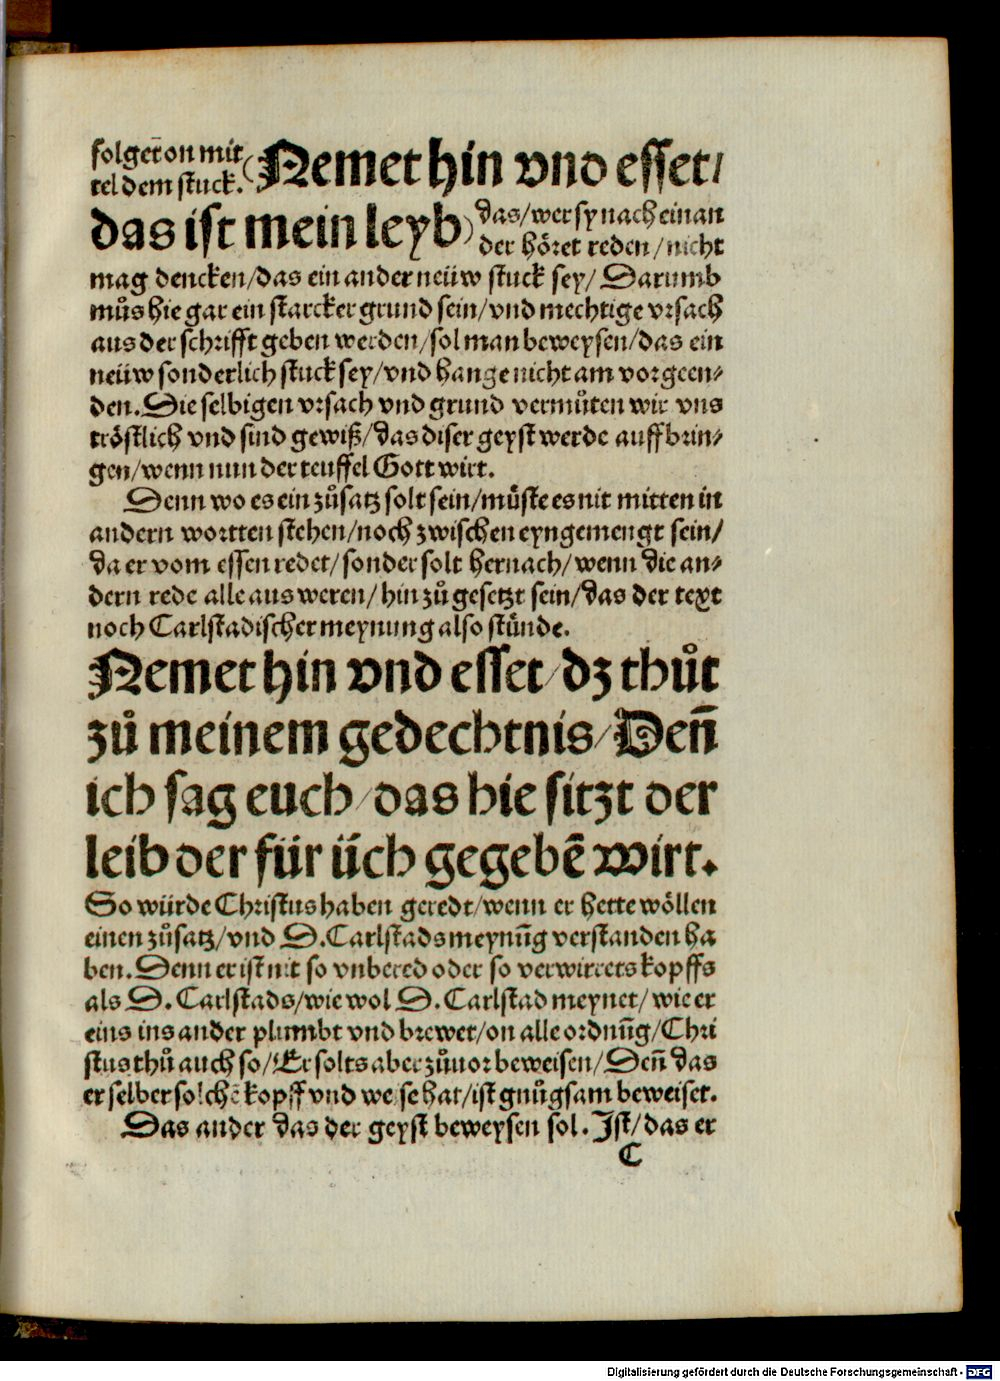 folget on mit
tel dem stuck. (Nemet hin vnd esset/
das ist mein leyb) das/wer sy nach einan
der höret reden/nicht
mag dencken/das ein ander neüw stuck sey/ Darumb
můs hie gar ein starcker grund sein/vnd mechtige vrsach
aus der schrifft geben werden/sol man beweysen/das ein
neüw sonderlich stuck sey/vnd hange nicht am vorgeen⸗
den. Die selbigen vrsach vnd grund vermůten wir vns
tröstlich vnd sind gewiß/das diser geyst werde auffbrin⸗
gen/wenn nun der teuffel Gott wirt.
Denn wo es ein zůsatz solt sein/müste es nit mitten in
andern wortten stehen/noch zwischen eyngemengt sein/
da er vom essen redet/sonder solt hernach/wenn die an⸗
dern rede alle aus weren/hin zů gesetzt sein/das der text
noch Carlstadischer meynung also stünde.
Nemet hin vnd esset/dz thůt
zů meinem gedechtnis/Deñ
ich sag euch/das hie sitzt der
leib der für üch gegebē wirt.
So würde Christus haben geredt/wenn er hette wöllen
einen zůsatz/vnd D. Carlstads meynūg verstanden ha
ben. Denn er ist nit so vnbered oder so verwirrets kopffs
als D. Carlstads/wie wol D. Carlstad meynet/wie er
eins ins ander plumbt vnd brewet/on alle ordnūg/Chri
stus thů auch so/Er solts aber zůuor beweisen/Deñ das
er selber solchē kopff vnd weise hat/ist gnůgsam beweiset.
Das ander das der geyst beweysen sol. Ist/das er
C
Digitalisierung gefördert durch die Deutsche Forschungsgemeinschaft - DFG